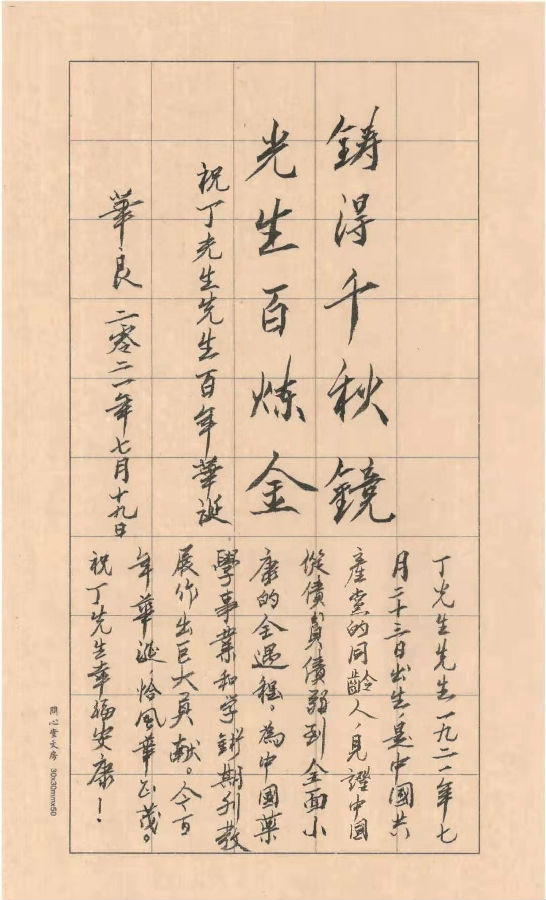 鑄得千秋鏡
光生百炼金
祝丁光生先生百年華誕
華良 二零二一年七月十九日
丁光生先生一九二一年七
月二十三日出生,是中國共
產党的同齡人,見證中国
從積貧積弱到全面小
康的全過程,為中國藥
學事業和学術期刊發
展作出巨大貢献。今百
年華誕,恰風華正茂。
祝丁先生幸福安康!
問心堂文房 30x30mmx50